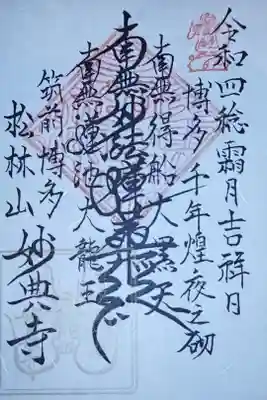 令和四稔霜月吉祥日
博多千年煌夜之砌
南無得船大黒天
南無妙法蓮華経
南無蓮池大龍王
筑前博多
松林山妙典寺